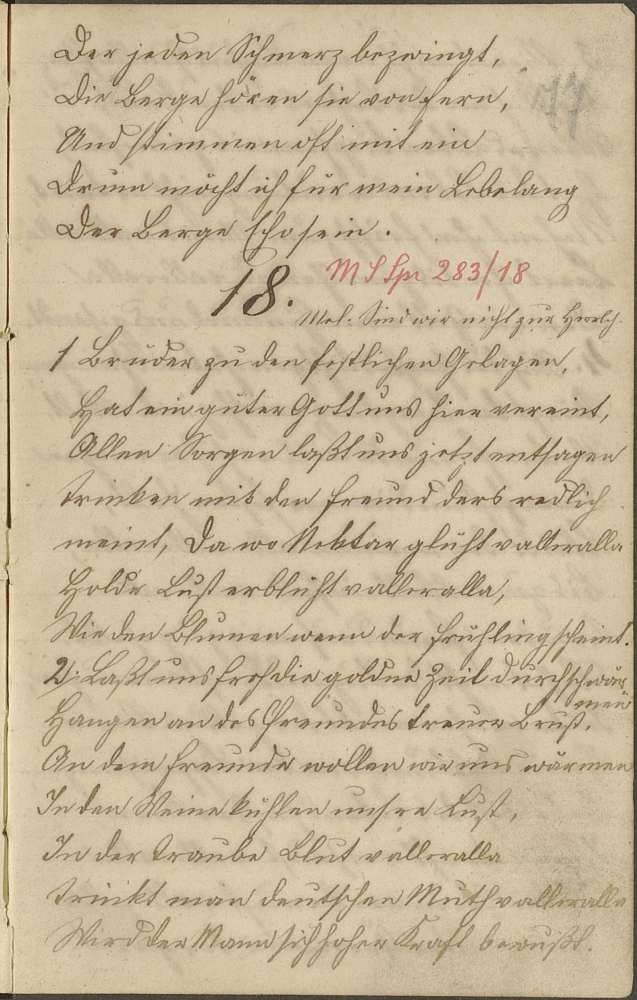 Der jeden Schmerz bezwingt,
Die Berge hören sie von fern,
Und stimmen oft mit ein
Drum möcht ich für mein Lebelang
Der Berge Echo sein.
18. M S Spr 283/18
Mel: Sind wir nicht zur Herrlch.
1 Brüder zu den festlichen Gelagen,
Hat ein guter Gott uns hier vereint,
Allen Sorgen laßt uns jetzt entsagen
Trinken mit den Freund ders redlich
meint, Da wo Nektar glüht valleralla
Holde Lust erblüht valleralla,
Wie den Blumen wenn der Frühling scheint.
2. Laßt uns froh die goldne Zeit durchschwär
men
Hangen an des Freundes treuer Brust,
An dem Freunde wollen wir uns wärmen
In den Weine kühlen unsre Lust,
In der Traube Blut valleralla
Trinkt man deutschen Muth valleralla
Wird der Mann sich hoher Kraft bewußt.